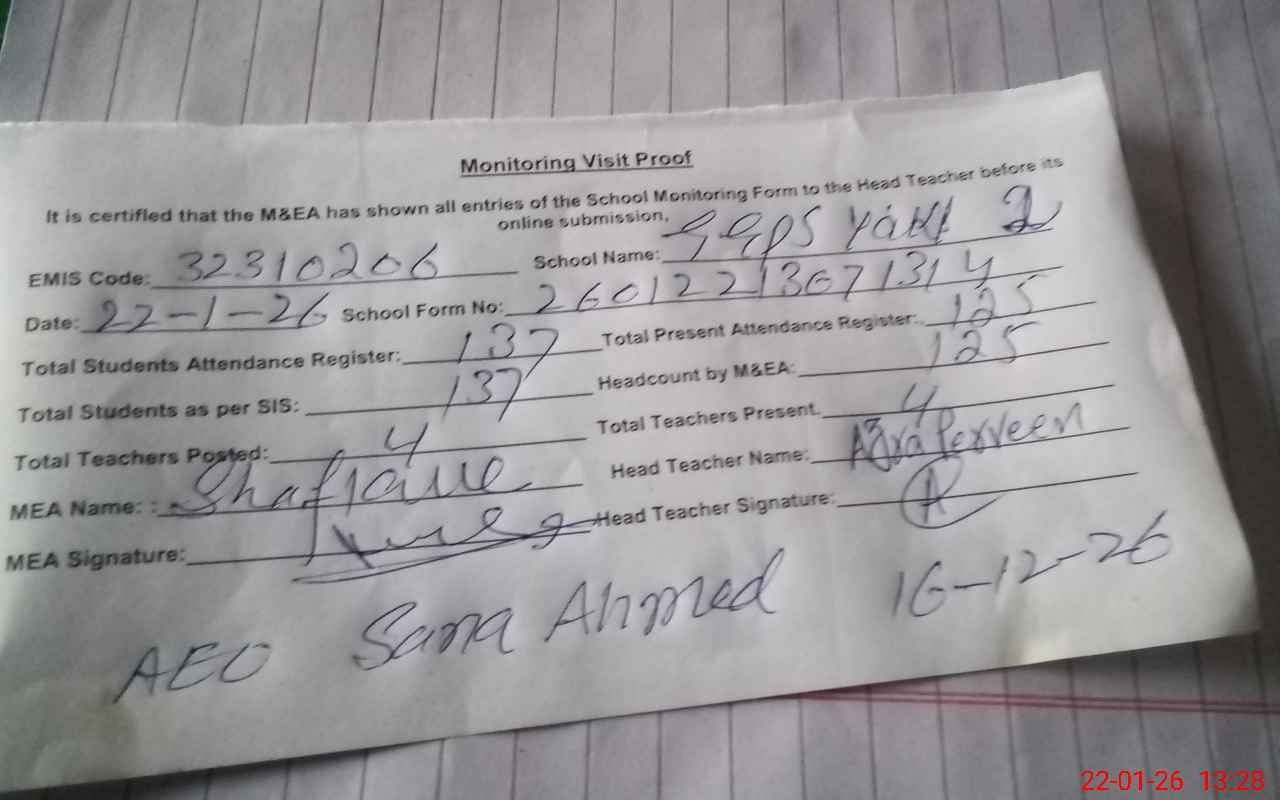 Monitoring Visit Proof
It is certified that the M&EA has shown all entries of the School Monitoring Form to the Head Teacher before its
online submission,
EMIS Code: 32310206 School Name: GGPS Yaki 2
Date: 22-1-26 School Form No: 26012213671314
Total Students Attendance Register: 137 Total Present Attendance Register:. 125
Total Students as per SIS: 137 Headcount by M&EA: 125
Total Teachers Posted: 4 Total Teachers Present. 4
MEA Name: : Shafique Head Teacher Name: Azra Perveen
MEA Signature: Head Teacher Signature:
AEO Sana Ahmed 16-12-26
22-01-26 13:28